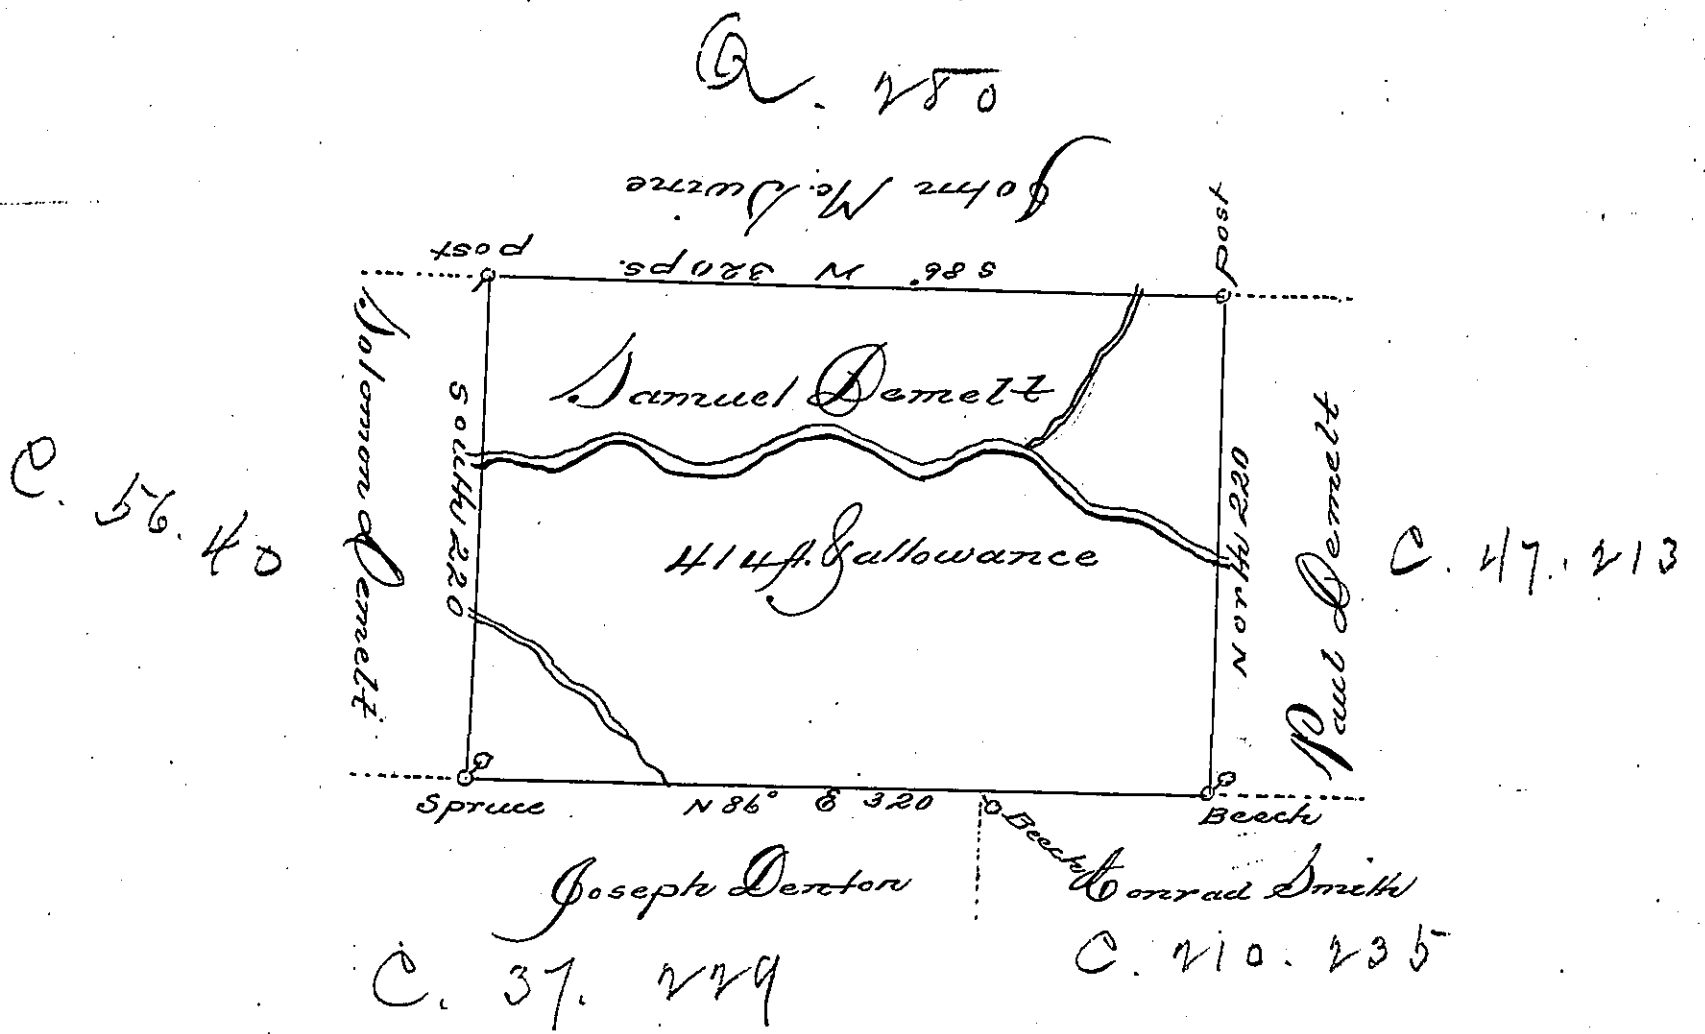 Q. 280
John McSwine
post
S 86° W 320 ps.
post
Solomon Demelt
South 220
Samuel Demelt
North 220
Paul Demelt
C. 56. 40
414 A. & allowance
C. 47. 213
Spruce
N 86° E 320
Beech
Beech
Joseph Denton
Conrad Smith
C. 37. 229
C. 210. 235